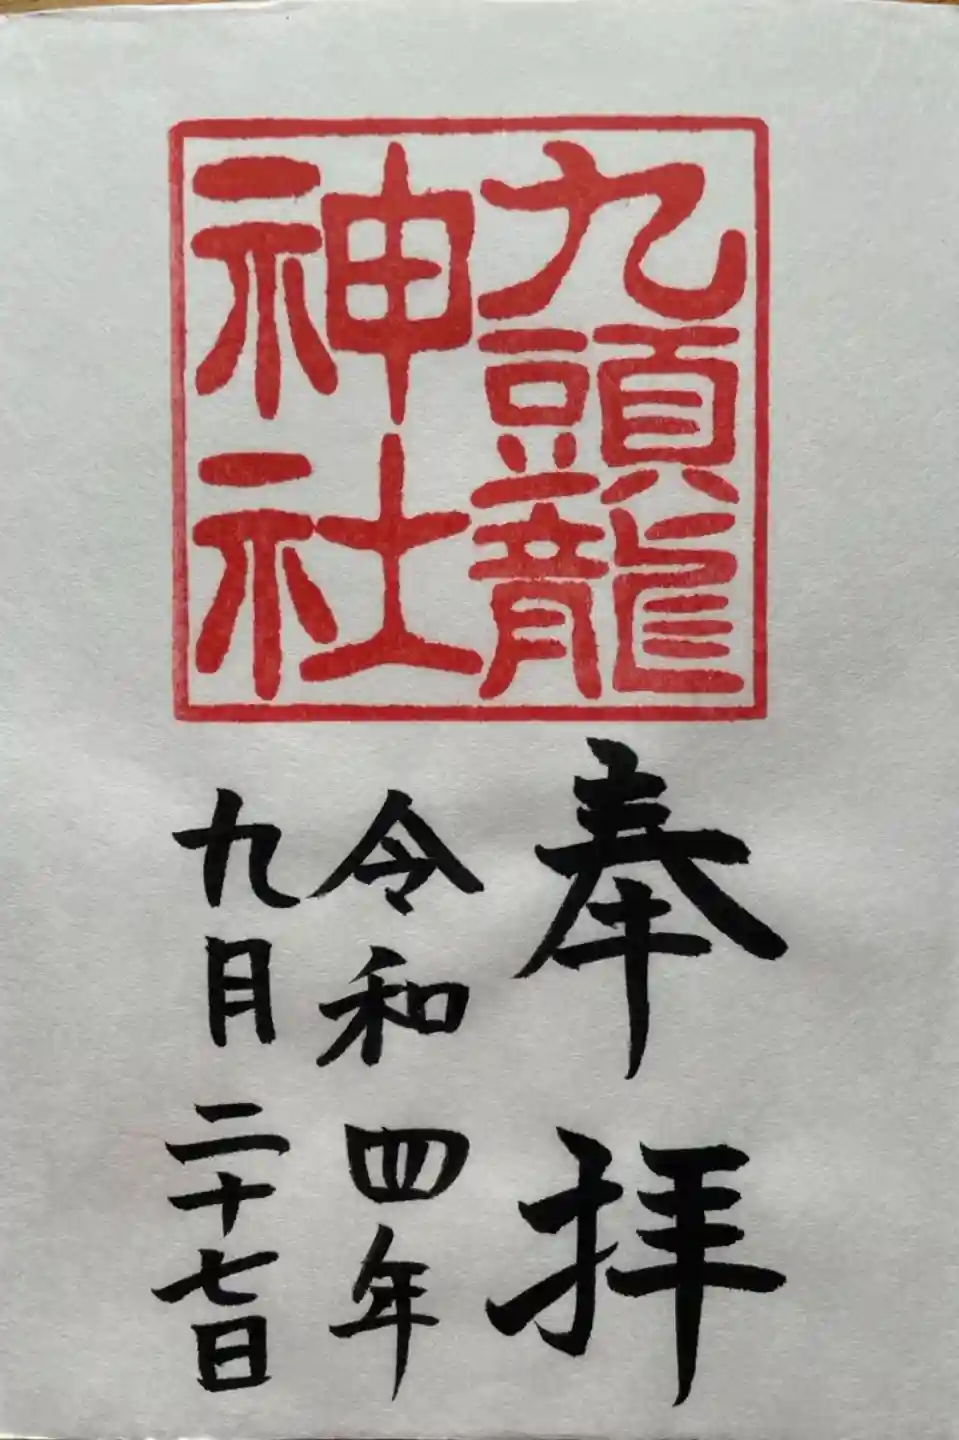 九頭龍
神社
奉拝
令和四年
九月二十七日